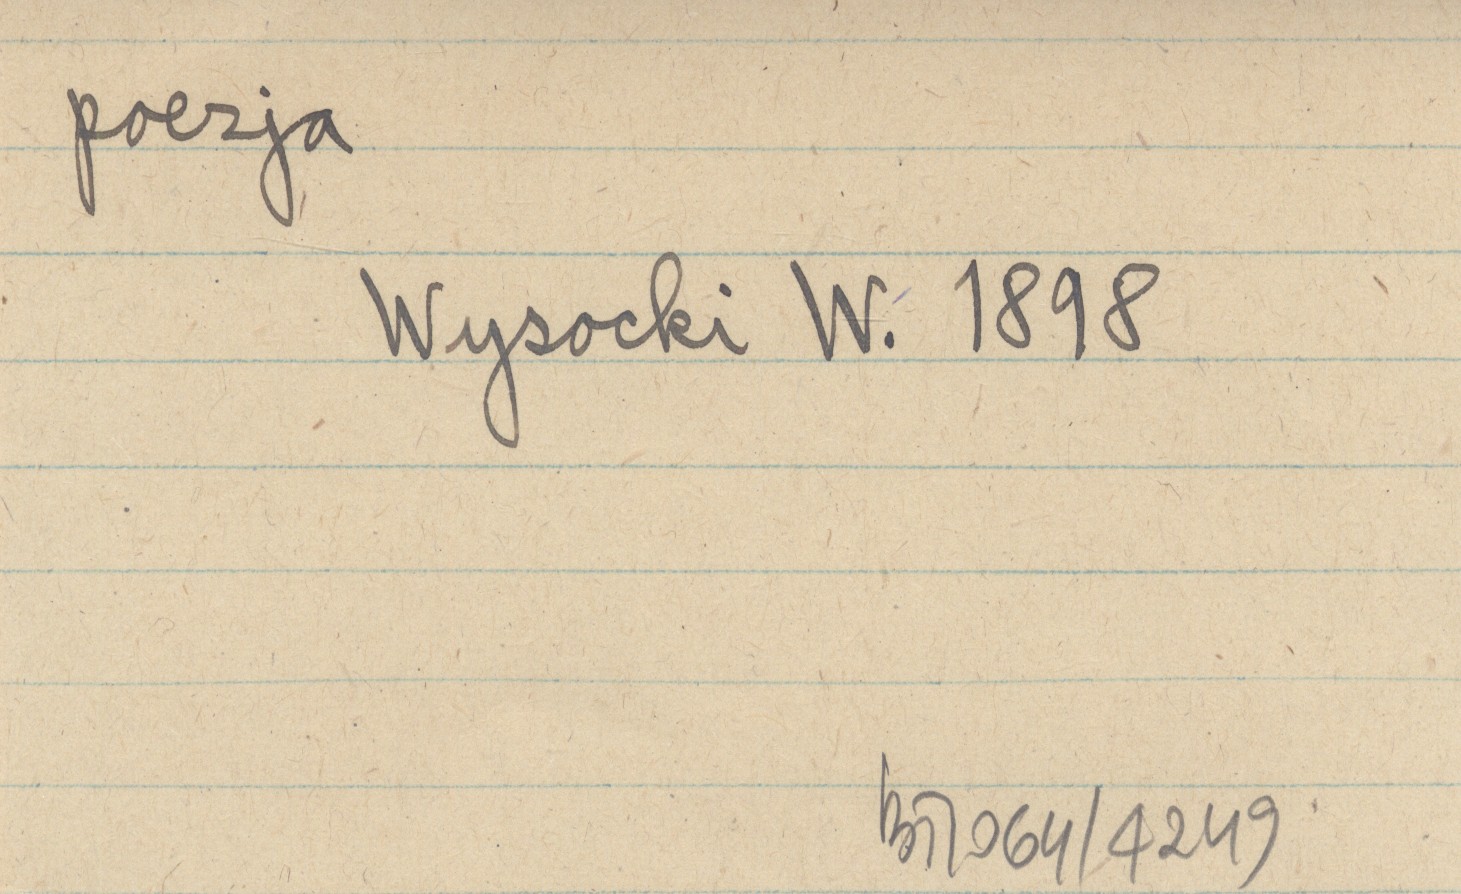 poezja
Wysocki W. 1898
064/4249